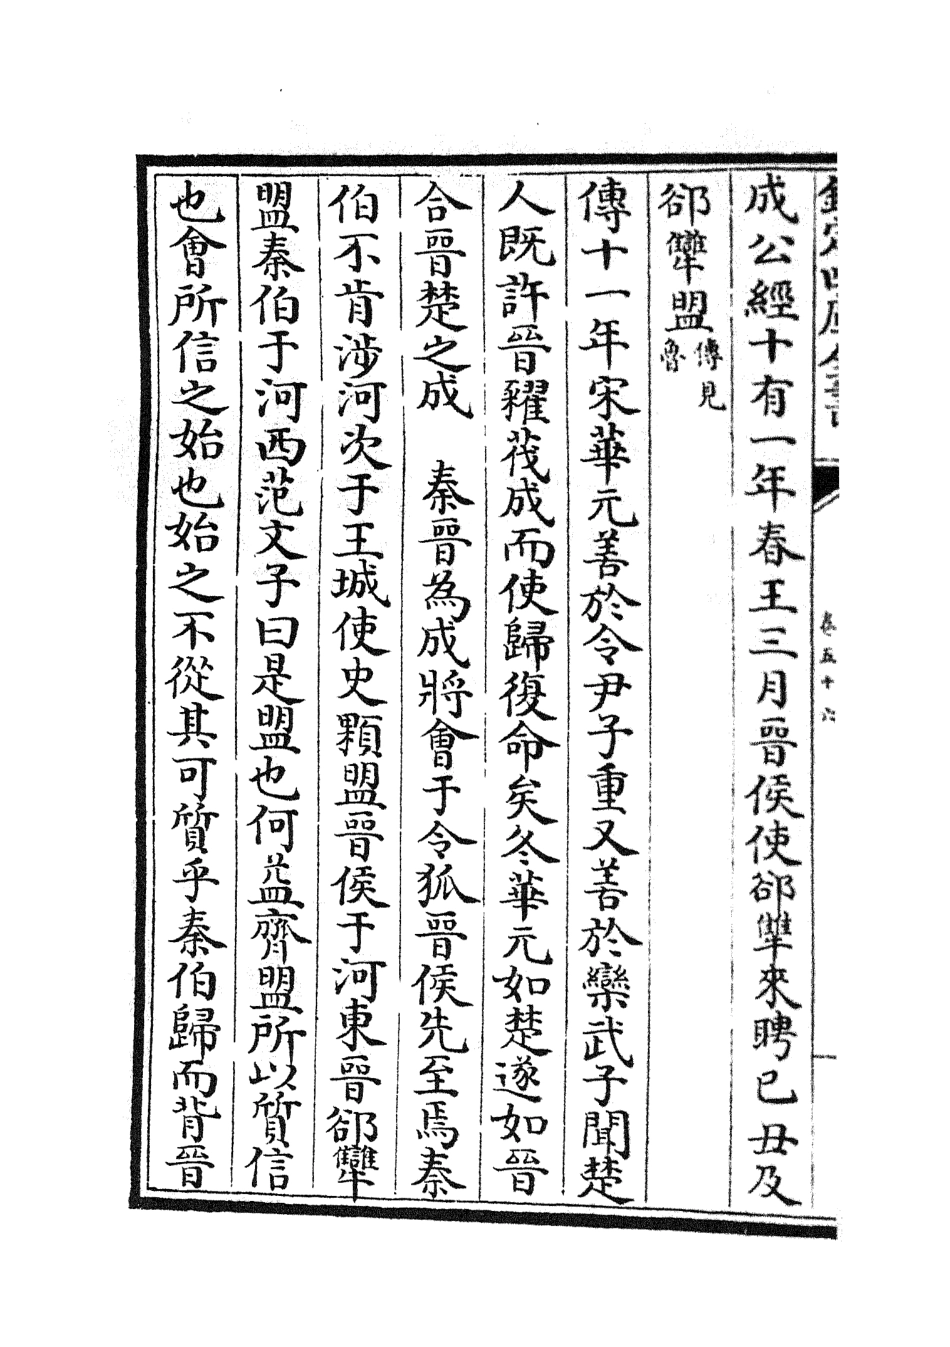 欽定四庫全書
卷五十六
成公經十有一年春王三月晉侯使郤犫來聘已丑及
郤犫盟傳見魯
傳十一年宋華元善於令尹子重又善於欒武子聞楚
人既許晉糴茷成而使歸復命矣冬華元如楚遂如晉
合晉楚之成　秦晉為成將會于令狐晉侯先至焉秦
伯不肯涉河次于王城使史顆盟晉侯于河東晉郤犫
盟秦伯于河西范文子曰是盟也何益齊盟所以質信
也會所信之始也始之不從其可質乎秦伯歸而背晉